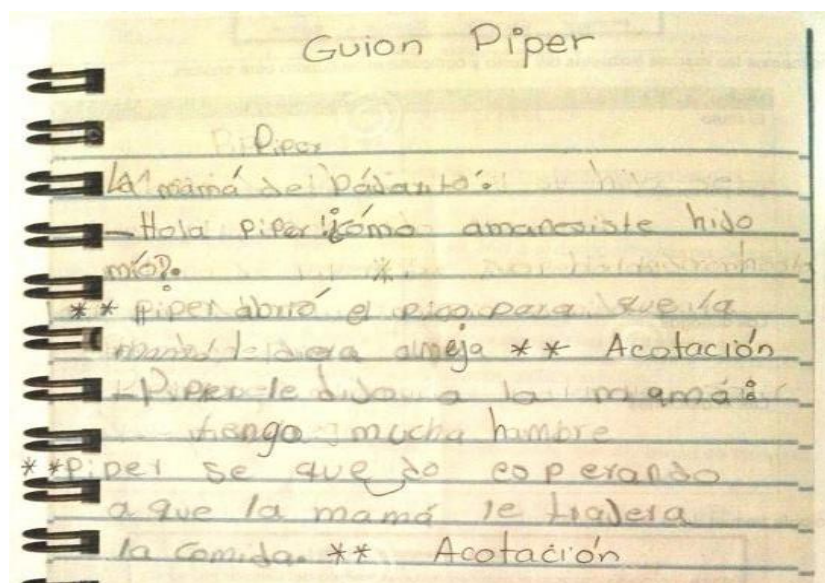 Guion Piper
Piper
La mamá del Pájarito:
-Hola Piper ¡¿cómo amanesiste hijo
mío?.
** piper abrió el pico para que la
mamá le diera almeja ** Acotación
-Piper le dijo a la mamá:
tengo mucha hambre
**Piper se que do esperando
a que la mamá le trajera
la comida. ** Acotación